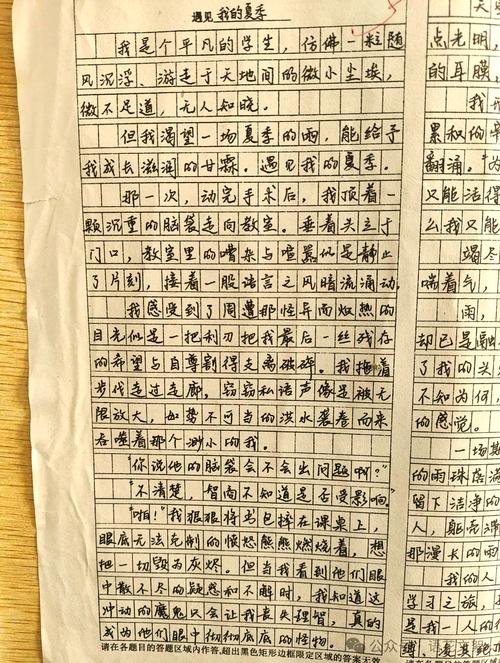 遇见 我的夏季
我是个平凡的学生，仿佛一粒随
风沉浮、游走于天地间的微小尘埃，
微不足道，无人知晓。
但我渴望一场夏季的雨，能给予
我成长滋润的甘霖。遇见我的夏季。
那一次，动完手术后，我顶着一
颗沉重的脑袋走向教室。垂着头立于
门口，教室里的嘈杂与喧嚣似是静止
了片刻，接着一股语言之风暗流涌动。
我感受到了周遭那怪异而炽热的
目光似是一把利刃把我最后一丝残存
的希望与自尊割得支离破碎。我拖着
步伐走过走廊，窃窃私语声像是被无
限放大，如势不可当的洪水袭卷而来
吞噬着那个渺小的我。
“你说他的脑袋会不会出问题啊？”
“不清楚，智商不知道是否受影响。”
“啪！”我狠狠将书包摔在课桌上，
眼底无法克制的愤怒熊熊燃烧着，想
把一切毁为灰烬。但当我看到他们眼
中散不尽的疑惑和不解时，我知道这
冲动的魔鬼只会让我丧失理智，真的
成为他们眼中彻彻底底的怪物。
请在各题目的答题区域内作答，超出黑色矩形边框限定区域的答案无效
点光明，
的耳膜
我
累积的
翻涌。“为
只能活得
么我只能
竭尽
喘着气，
雨，
却已是融
了我的头
不知为何，
的感觉。
一场
的雨珠落满
留下洁净的
人，躯壳滂
那漫长的雨
我的人
学习之旅，
是我一人的
请在各题目
公众号